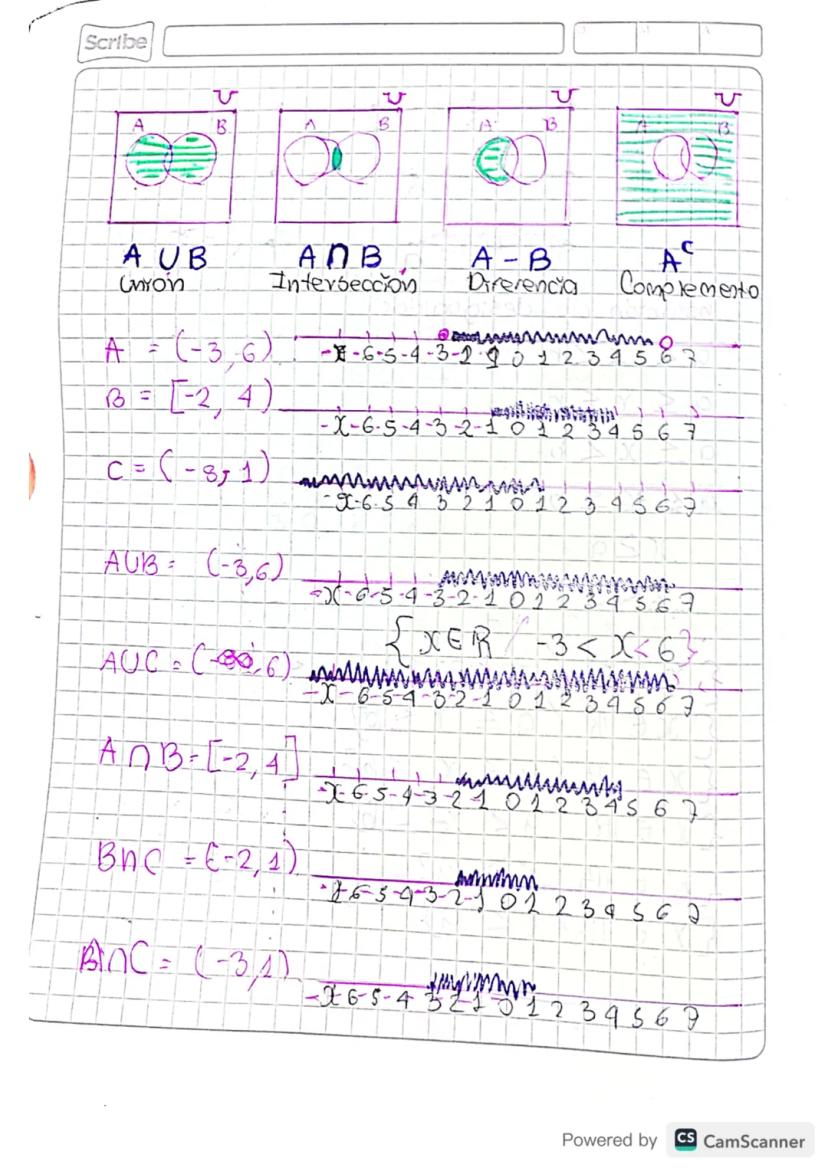 Scribe
U U U U
A B A B A B A B
A ∪ B A ∩ B A - B Aᶜ
Unión Intersección Diferencia Complemento
A = (-3, 6)
-6 -5 -4 -3 -2 0 1 2 3 4 5 6 7
B = [-2, 4)
-6 -5 -4 -3 -2 -1 0 1 2 3 4 5 6 7
C = (-8, 1)
-6 5 4 3 2 1 0 1 2 3 4 5 6 7
A∪B = (-3,6)
-6 -5 -4 -3 -2 -1 0 1 2 3 4 5 6 7
{x∈R / -3 < x < 6}
A∪C = ( ,6)
-6 -5 -4 -3 -2 -1 0 1 2 3 4 5 6 7
A∩B = [-2, 4]
6 -5 -4 -3 -2 -1 0 1 2 3 4 5 6 7
B∩C = (-2, 1)
-6 -5 -4 -3 -2 -1 0 1 2 3 4 5 6 7
∩C = (-3,1)
6 -5 -4 3 2 -1 0 1 2 3 4 5 6 7
Powered by CS CamScanner